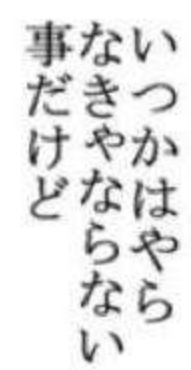 いつかはやら
なきゃならない
事だけど